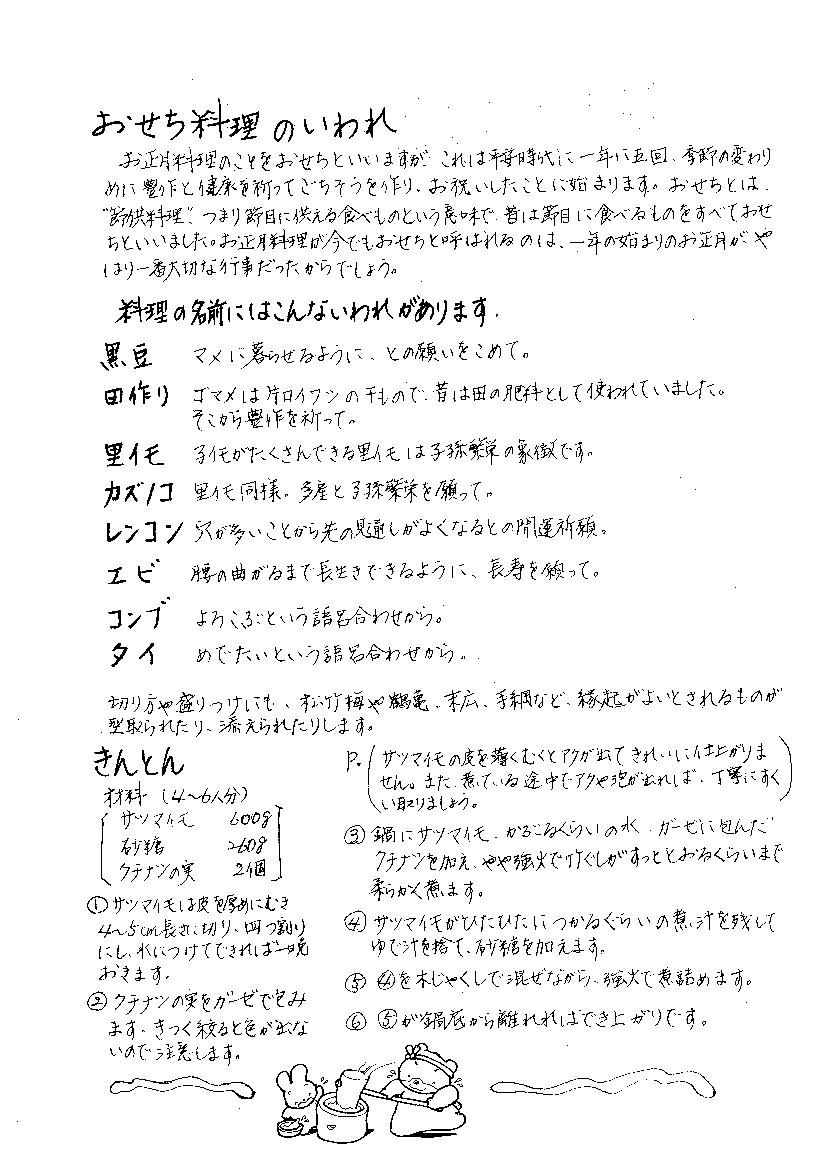 おせち料理のいわれ
お正月料理のことをおせちといいますが、これは平安時代に一年に五回、季節の変わり
めに豊作と健康を祈ってごちそうを作り、お祝いしたことに始まります。おせちとは、
"節供料理"、つまり節目に供える食べものという意味で、昔は節目に食べるものをすべておせ
ちといいました。お正月料理が今でもおせちと呼ばれるのは、一年の始まりのお正月が、や
はり一番大切な行事だったからでしょう。
料理の名前にはこんないわれがあります。
黒豆 マメに暮らせるように、との願いをこめて。
田作り ゴマメは片口イワシの干もので、昔は田の肥料として使われていました。
そこから豊作を祈って。
里イモ 子イモがたくさんできる里イモは子孫繁栄の象徴です。
カズノコ 里イモ同様。多産と子孫繁栄を願って。
レンコン 穴が多いことから先の見通しがよくなるとの開運祈願。
エビ 腰の曲がるまで長生きできるように、長寿を願って。
コンブ よろこぶという語呂合わせから。
タイ めでたいという語呂合わせから。
切り方や盛りつけにも、松竹梅や鶴亀、末広、手綱など、縁起がよいとされるものが
型取られたり、添えられたりします。
きんとん
材料 (4〜6人分)
サツマイモ 600g
砂糖 260g
クチナシの実 2個
① サツマイモは皮を厚めにむき
4〜5cm長さに切り、四つ割り
にし、水につけてできれば一晩
おきます。
② クチナシの実をガーゼで包み
ます。きつく絞ると色が出ない
ので注意します。
P. (サツマイモの皮を薄くむくとアクが出てきれいに仕上がりま
せん。また、煮ている途中でアクや泡が出れば、丁寧にすく
い取りましょう。)
③ 鍋にサツマイモ、かぶるくらいの水、ガーゼに包んだ
クチナシを加え、やや強火で竹ぐしがすっととおるくらいまで
柔らかく煮ます。
④ サツマイモがひたひたにつかるぐらいの煮汁を残して
ゆで汁を捨て、砂糖を加えます。
⑤ ④を木じゃくしで混ぜながら、強火で煮詰めます。
⑥ ⑤が鍋底から離れればでき上がりです。